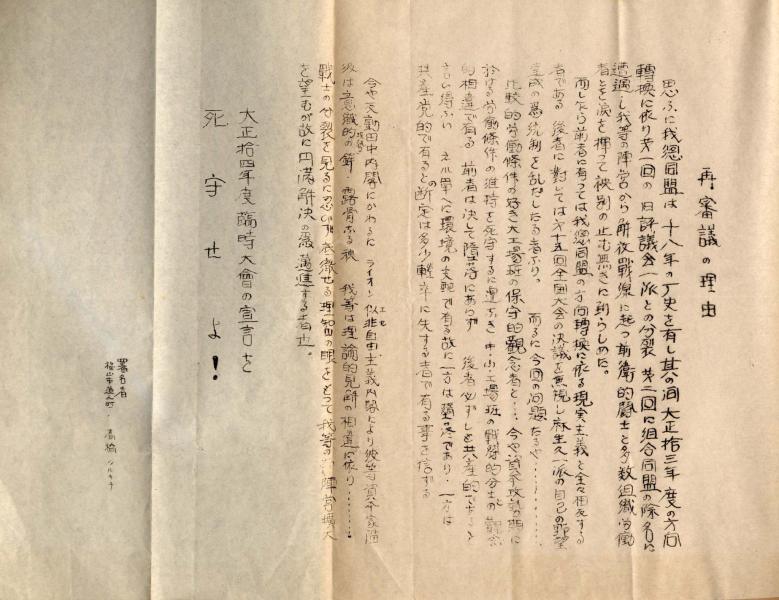 再審議の理由
思ふに我総同盟は十八年の歴史を有し其の間大正拾三年度の方向
転換に依り第一回の旧評議会一派との分裂 第二回に組合同盟の除名に
遭遇し我等の陣営から解放戦線に起つ前衛的闘士と多数組織労働
者とを涙を揮って袂別の止む無きに到らしめた。
而しながら前者に有っては我総同盟の方向転換に依る現実主義と全々相反する
者である 後者に対しては第十五回全国大会の決議を無視し麻生久一派の自己の野望
達成の為統制を乱したる者なり。 而るに今回の問題たるや…………
比較的労働條件の好き大工場班の保守的観念者と…。今や資本攻勢の期に
於ける労働條件の維持を死守するに遑なき中・小工場班の戦闘的分子の観念
的相違で有る 前者は決して堕落にあらず 後者必ずしも共産的で
言い得ない それ単へに環境の支配で有る故に一方は堕落であり・一方は
共産党的で有るとの断定は多少軽卒に失する者で有る事を信ずる
今や反動田中内閣にかわるに ライオン似非自由主義内閣により彼等資本家
級は意識的の攻勢・露骨なる 我等は理論的見解の相違に依り………
戦士の分裂を見るに忍びず 透徹せる理智の眼をもって我等の 陣営拡大
を望むが故に円満解決の為邁進する者也。
大正拾四年度臨時大會の宣言を
死守せよ!
署名者
高橋